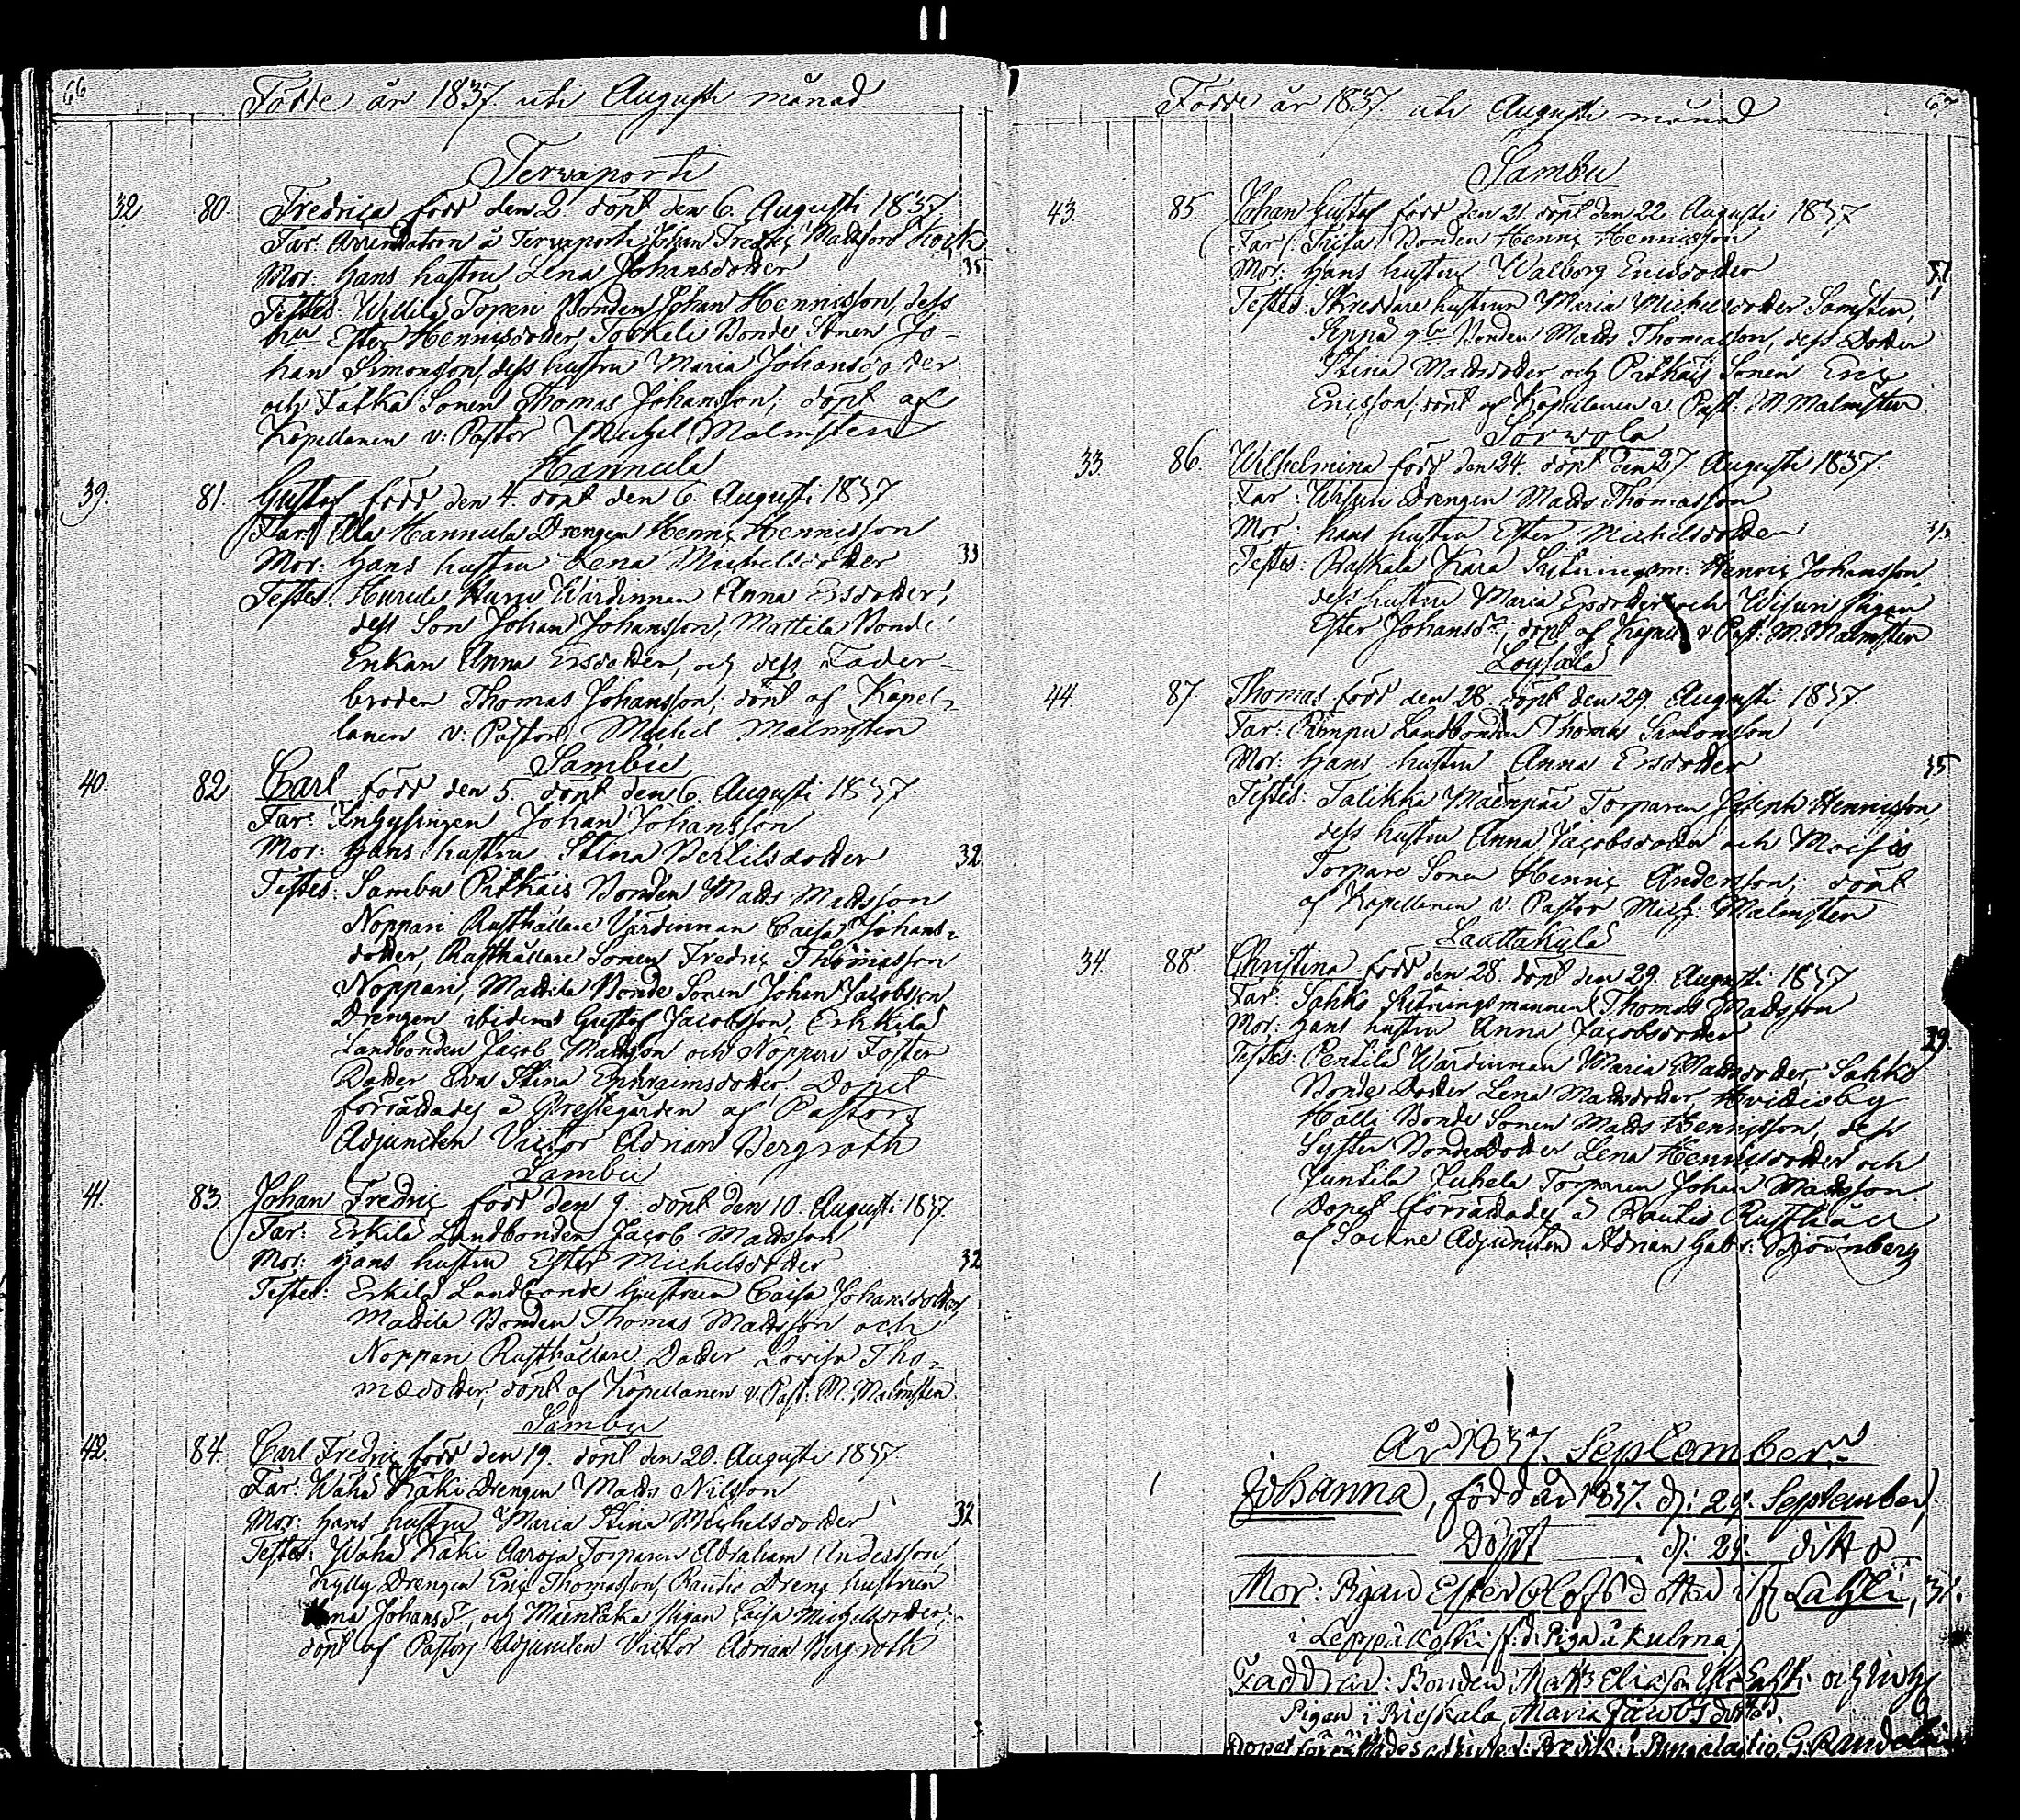 66
Födde år 1837. uti Augusti månad
Tervaporti
32 80. Fredrica född den 2. döpt den 6. Augusti 1837
Far: Arrendatorn å Tervaporti Johan Fredric Mattsson Höök
Mor: Hans hustru Lena Johansdotter 35
Testes: Willilä Topen Bonden Johan Hennicsson, dess
hu Ester Hennicsdotter, Torkeli Bonde Sonen Jo-
han Simonsson, dess hustru Maria Johansdotter
och Fatka Sonen Thomas Johansson; döpt af
Kapellanen v: Pastor Michel Malmsten
Hannula
39. 81. Gustaf född den 4. döpt den 6. Augusti 1837.
Far: Ella Hannula Drengen Henric Hennicsson
Mor: Hans hustru Lena Michelsdotter 33
Testes: Hurula Harju Wärdinnan Anna Ersdotter,
dess Son Johan Johansson, Mattila Bonde
Enkan Anna Ersdotter, och dess Fader-
broder Thomas Johansson, döpt af Kapel-
lanen v: Pastor Michel Malmsten
Sambu
40. 82 Carl född den 5. döpt den 6. Augusti 1837.
Far: Inhysingen Johan Johansson
Mor: Hans hustru Stina Bertilsdotter 32
Testes: Sambu Pitkäis Bonden Matts Mattsson
Noppari Rusthållare Värdinnan Caisa Johans-
dotter, Rusthållare Sonen Fredric Thomasson
Noppari, Mattila Bonde Sonen Johan Jacobsson
Drengen ibidem Gustaf Jacobsson, Erkkilä
Landbonden Jacob Mattsson och Noppari Foster
Dotter Eva Stina Ephraimsdotter. Dopet
förrättades å Prestegården af Pastors
Adjuncten Victor Adrian Bergroth
Sambu
41. 83. Johan Fredric född den 9. döpt den 10. Augusti 1837.
Far: Erkilä Landbonden Jacob Mattsson
Mor: Hans hustru Ester Michelsdotter 32
Testes: Erkilä Landbonde hustrun Caisa Johansdotter
Mattila Bonden Thomas Mattsson och
Noppari Rusthållare Dotter Lovisa Tho-
mædotter, döpt af Kapellanen v. Past: M. Malmsten
Sambu
42. 84. Carl Fredric född den 19. döpt den 20. Augusti 1837.
Far: Wähä Käki Drengen Matts Nilsson
Mor: Hans hustru Maria Stina Michelsdotter 32
Testes: Wähä Käki Aaroja Torparen Abraham Andersson
Kylly Drengen Eric Thomasson, Rautio Dreng hustrun
Johansdr, och Mäenlaka Pigan Caisa Michelsdotter;
döpt af Pastors Adjuncten Victor Adrian Bergroth
67
Födde år 1837. uti Augusti månad
Sambu
43. 85. Johan Gustaf född den 21. döpt den 22 Augusti 1837
Far: Frisa Bonden Henric Hennicsson
Mor: Hans hustru Walborg Ericsdotter 31
Testes: Skreddare hustrun Maria Michelsdotter Samsten,
Seppä gla Bonden Matts Thomasson, dess Dotter
Stina Mattsdotter och Pitkäis Sonen Eric
Ericsson; döpt af Kapellanen v. Past: M. Malmsten
Sorwola
33. 86. Wilhelmina född den 24. döpt den 27. Augusti 1837.
Far: Wisuri Drengen Matts Thomasson
Mor: hans hustru Ester Michelsdotter 35
Testes: Raskala Kara Sytningsm: Henric Johansson,
dess hustru Maria Ersdotter och Wisuri Pigan
Ester Johansdr; döpt af Kapell v. Past: M. Malmsten
Loysala
44. 87 Thomas född den 28. döpt den 29. Augusti 1837.
Far: Rimpu Landbonden Thomas Simonsson
Mor: Hans hustru Anna Ersdotter 35
Testes: Talikka Mäenpää Torparen Joseph Hennicsson,
dess hustru Anna Jacobsdotter och Moisio
Torpare Sonen Henric Andersson; döpt
af Kapellanen v. Pastor Mich: Malmsten
Lauttakylä
34. 88. Christina född den 28. döpt den 29. Augusti 1837
Far: Sahko Sytningsmannen Thomas Mattsson
Mor: Hans hustru Anna Jacobsdotter 29.
Testes: Pentilä Wärdinnan Maria Mattsdotter, Sahko
Bonde Dotter Lena Mattsdotter Hvittisby
Hälli Bonde Sonen Matts Hennicsson, dess
Syster Bondedotter Lena Hennicsdotter och
Juntila Juhela Torparen Johan Mattsson
Dopet förrättades å Rautio Rusthåll
af Sockne Adjuncten Adrian Gabr: Björnberg
År 1837. September
Johanna, född år 1837. d: 29. September,
Döpt d: 29. ditto
Mor: Pigan Ester Olofsdotter ifr Lahti, 31.
i Leppäkoski f.d. Piga å Kulma
Faddrar: Bonden Matts Eliasson Lahti och
Pigan i Rieskala, Maria Jacobsdotter.